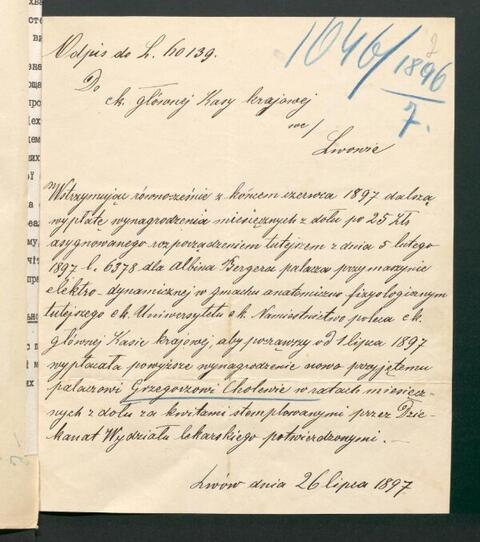 1046/1896
7.
Odpis do L. 60139.
Do
ck. głównej Kasy krajowej
we/
Lwowie
Wstrzymując równocześnie z końcem czerwca 1897 dalszą
wypłatę wynagrodzenia miesięcznych z dołu po 25 Złr
asygnowanego rozporządzeniem tutejszem z dnia 5 lutego
1897 l. 6378 dla Albina Bergera palacza przy maszynie
elektro-dynamicznej w gmachu anatomiczno fizyologicznym
tutejszego ck. Uniwersytetu c.k. Namiestnictwo poleca ck.
głównej Kasie krajowej, aby począwszy od 1 lipca 1897
wypłacała powyższe wynagrodzenie nowo-przyjętemu
palaczowi Grzegorzowi Cholewie w ratach miesięcz-
nych z dołu za kwitami stemplowanymi przez Dzie-
kanat Wydziału lekarskiego potwierdzonymi. —
Lwów dnia 26 lipca 1897